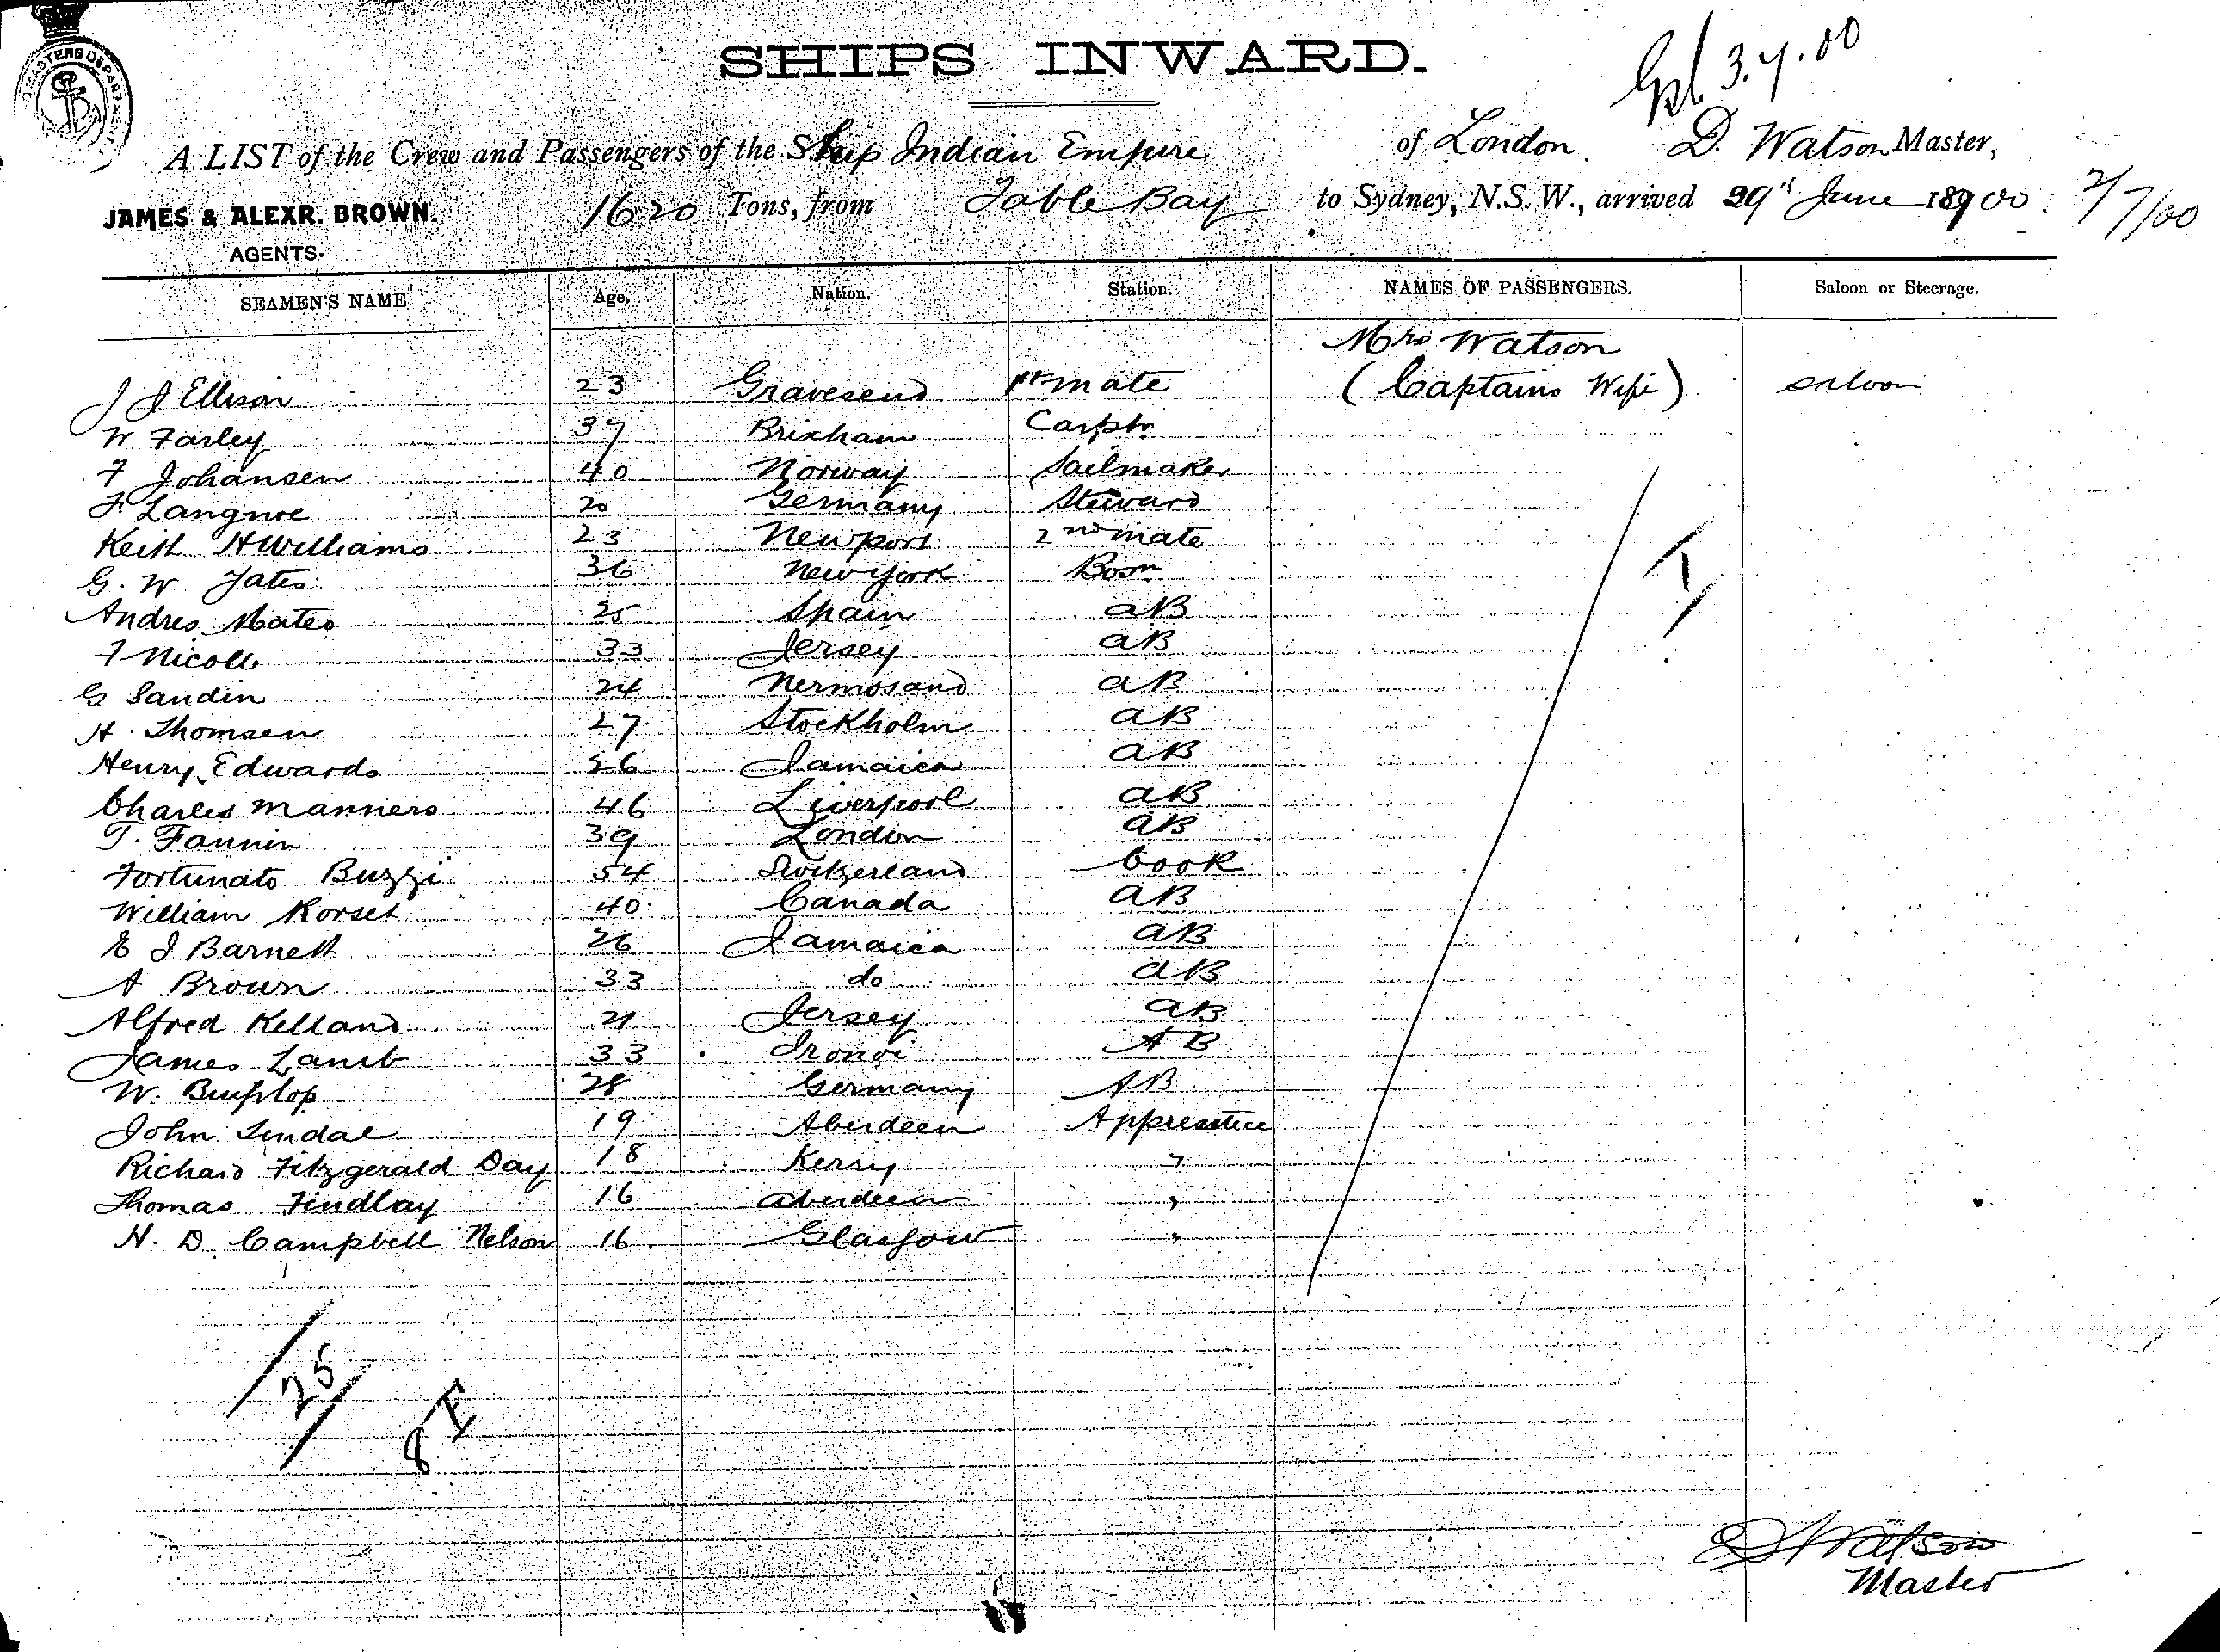 SHIPS INWARD.
3.7.00
A LIST of the Crew and Passengers of the Ship Indian Empire of London D. Watson Master,
JAMES & ALEXR. BROWN. 1620 Tons, from Table Bay to Sydney, N.S.W., arrived 29th June 18900. 2/7/00
AGENTS.
SEAMEN'S NAME Age. Nation. Station. NAMES OF PASSENGERS. Saloon or Steerage.
Mrs Watson
J J Ellison 23 Gravesend 1st mate (Captains Wife) Saloon
W Farley 37 Brixham Carptr
F Johansen 40 Norway Sailmaker
F. 20 Germany Steward
Keith H Williams 23 Newport 2nd mate
G. W Yates 36 New York Bosn
Andres Mateo 25 Spain aB
F Nicolle 33 Jersey aB
G Sandin 24 aB
H. Thomsen 27 Stockholm aB
Henry Edwards 26 Jamaica aB
Charles Manners 46 Liverpool aB
T. Fannin 39 London aB
Fortunato Buzzi 54 Switzerland Cook
William 40 Canada aB
E J Barnett 26 Jamaica aB
A Brown 33 do aB
Alfred Kelland 21 Jersey aB
James Lamb 33 AB
W. 28 Germany AB
John 19 Aberdeen Apprentice
Richard Fitzgerald Day 18 Kerry "
Thomas Findlay 16 Aberdeen "
H. D. Campbell Nelson 16 Glasgow "
25
8 F
D Watson
Master